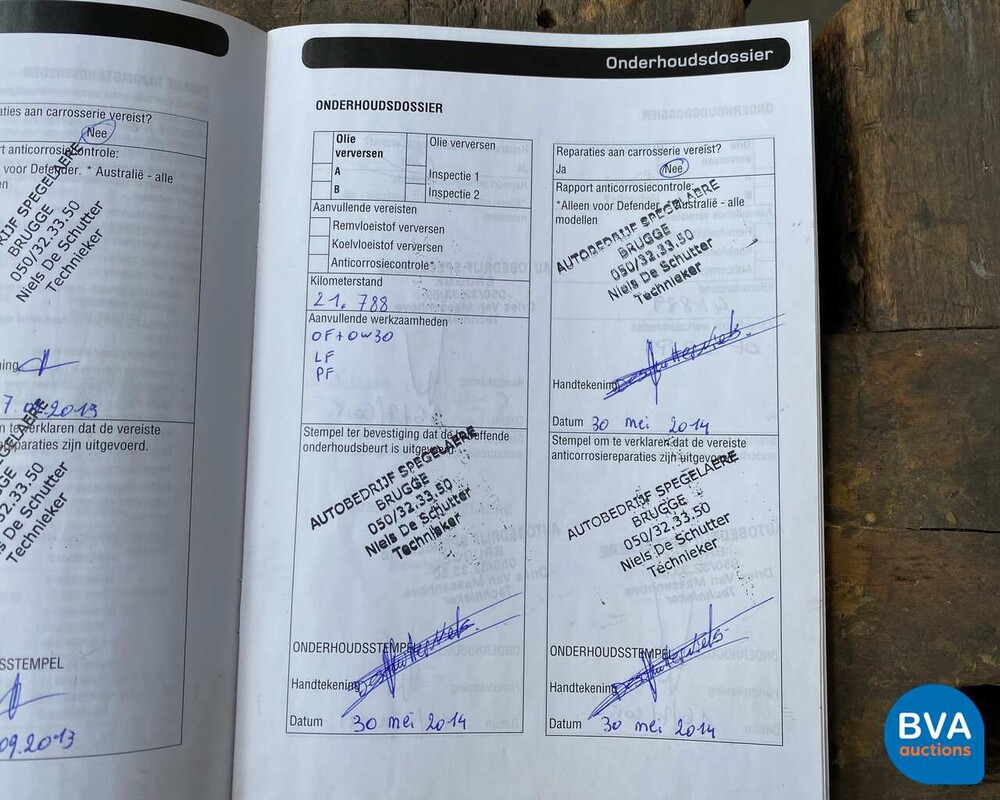 aties aan carrosserie vereist?
Nee
rt anticorrosiecontrole:
n voor Defender. * Australië - alle
en
SPEGELAERE
BRUGGE
050/32.33.50
Niels De Schutter
Technieker
ning
7.09.2013
n te verklaren dat de vereiste
eparaties zijn uitgevoerd.
32.33.50
s De Schutter
Technieker
SSTEMPEL
09.2013
Onderhoudsdossier
ONDERHOUDSDOSSIER
Olie verversen
Olie verversen
A
Inspectie 1
B
Inspectie 2
Aanvullende vereisten
Remvloeistof verversen
Koelvloeistof verversen
Anticorrosiecontrole*
Kilometerstand
21. 788
Aanvullende werkzaamheden
OF + 0W30
LF
PF
Stempel ter bevestiging dat de betreffende
onderhoudsbeurt is uitgevoerd.
AUTOBEDRIJF SPEGELAERE
BRUGGE
050/32.33.50
Niels De Schutter
Technieker
ONDERHOUDSSTEMPEL
Handtekening
Datum 30 mei 2014
Reparaties aan carrosserie vereist?
Ja Nee
Rapport anticorrosiecontrole:
*Alleen voor Defender. * Australië - alle
modellen
AUTOBEDRIJF SPEGELAERE
BRUGGE
050/32.33.50
Niels De Schutter
Technieker
Handtekening
Datum 30 mei 2014
Stempel om te verklaren dat de vereiste
anticorrosiereparaties zijn uitgevoerd.
AUTOBEDRIJF SPEGELAERE
BRUGGE
050/32.33.50
Niels De Schutter
Technieker
ONDERHOUDSSTEMPEL
Handtekening
Datum 30 mei 2014
BVA
auctions